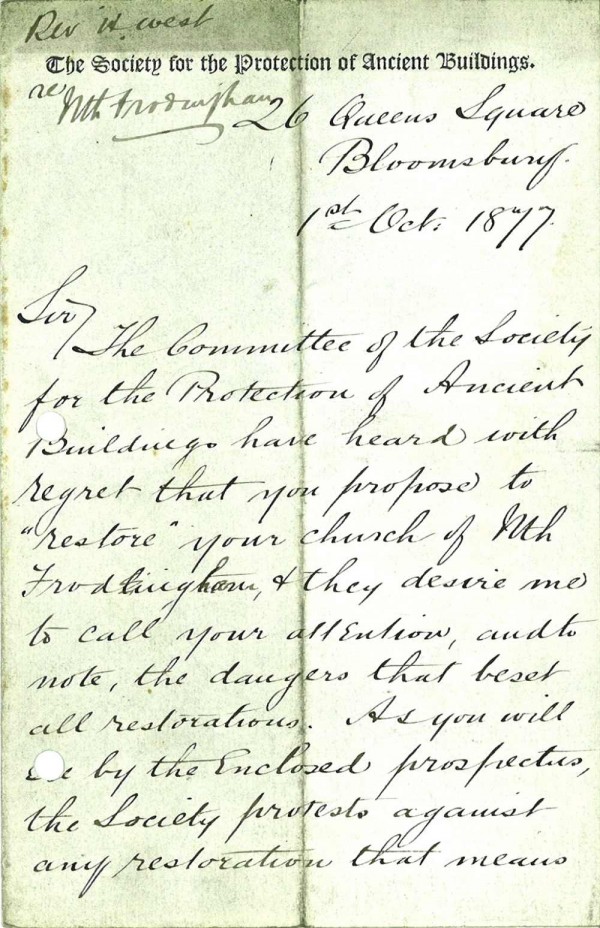 Rev H. West
The Society for the Protection of Ancient Buildings.
re Nth Frodingham
26 Queens Square
Bloomsbury.
1st Oct. 1877.
Sir,
The Committee of the Society
for the Protection of Ancient
Buildings have heard with
regret that you propose to
"restore" your church of Nth
Frodingham, & they desire me
to call your attention, and to
note, the dangers that beset
all restorations. As you will
see by the Enclosed prospectus,
the Society protests against
any restoration that means